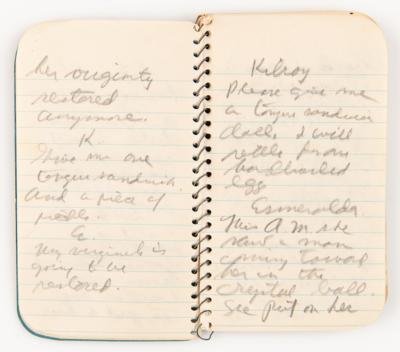 her virginity
restored
anymore.
K.
Give me one
tongue sandwich.
And a piece of
pickle.
E.
My virginity is
going to be
restored.
Kilroy
Please give me
a tongue sandwich
doll. I will
settle from
hardboiled
egg
Esmeralda
This A.M. she
saw a man
coming toward
her in the
crystal ball.
See put on her